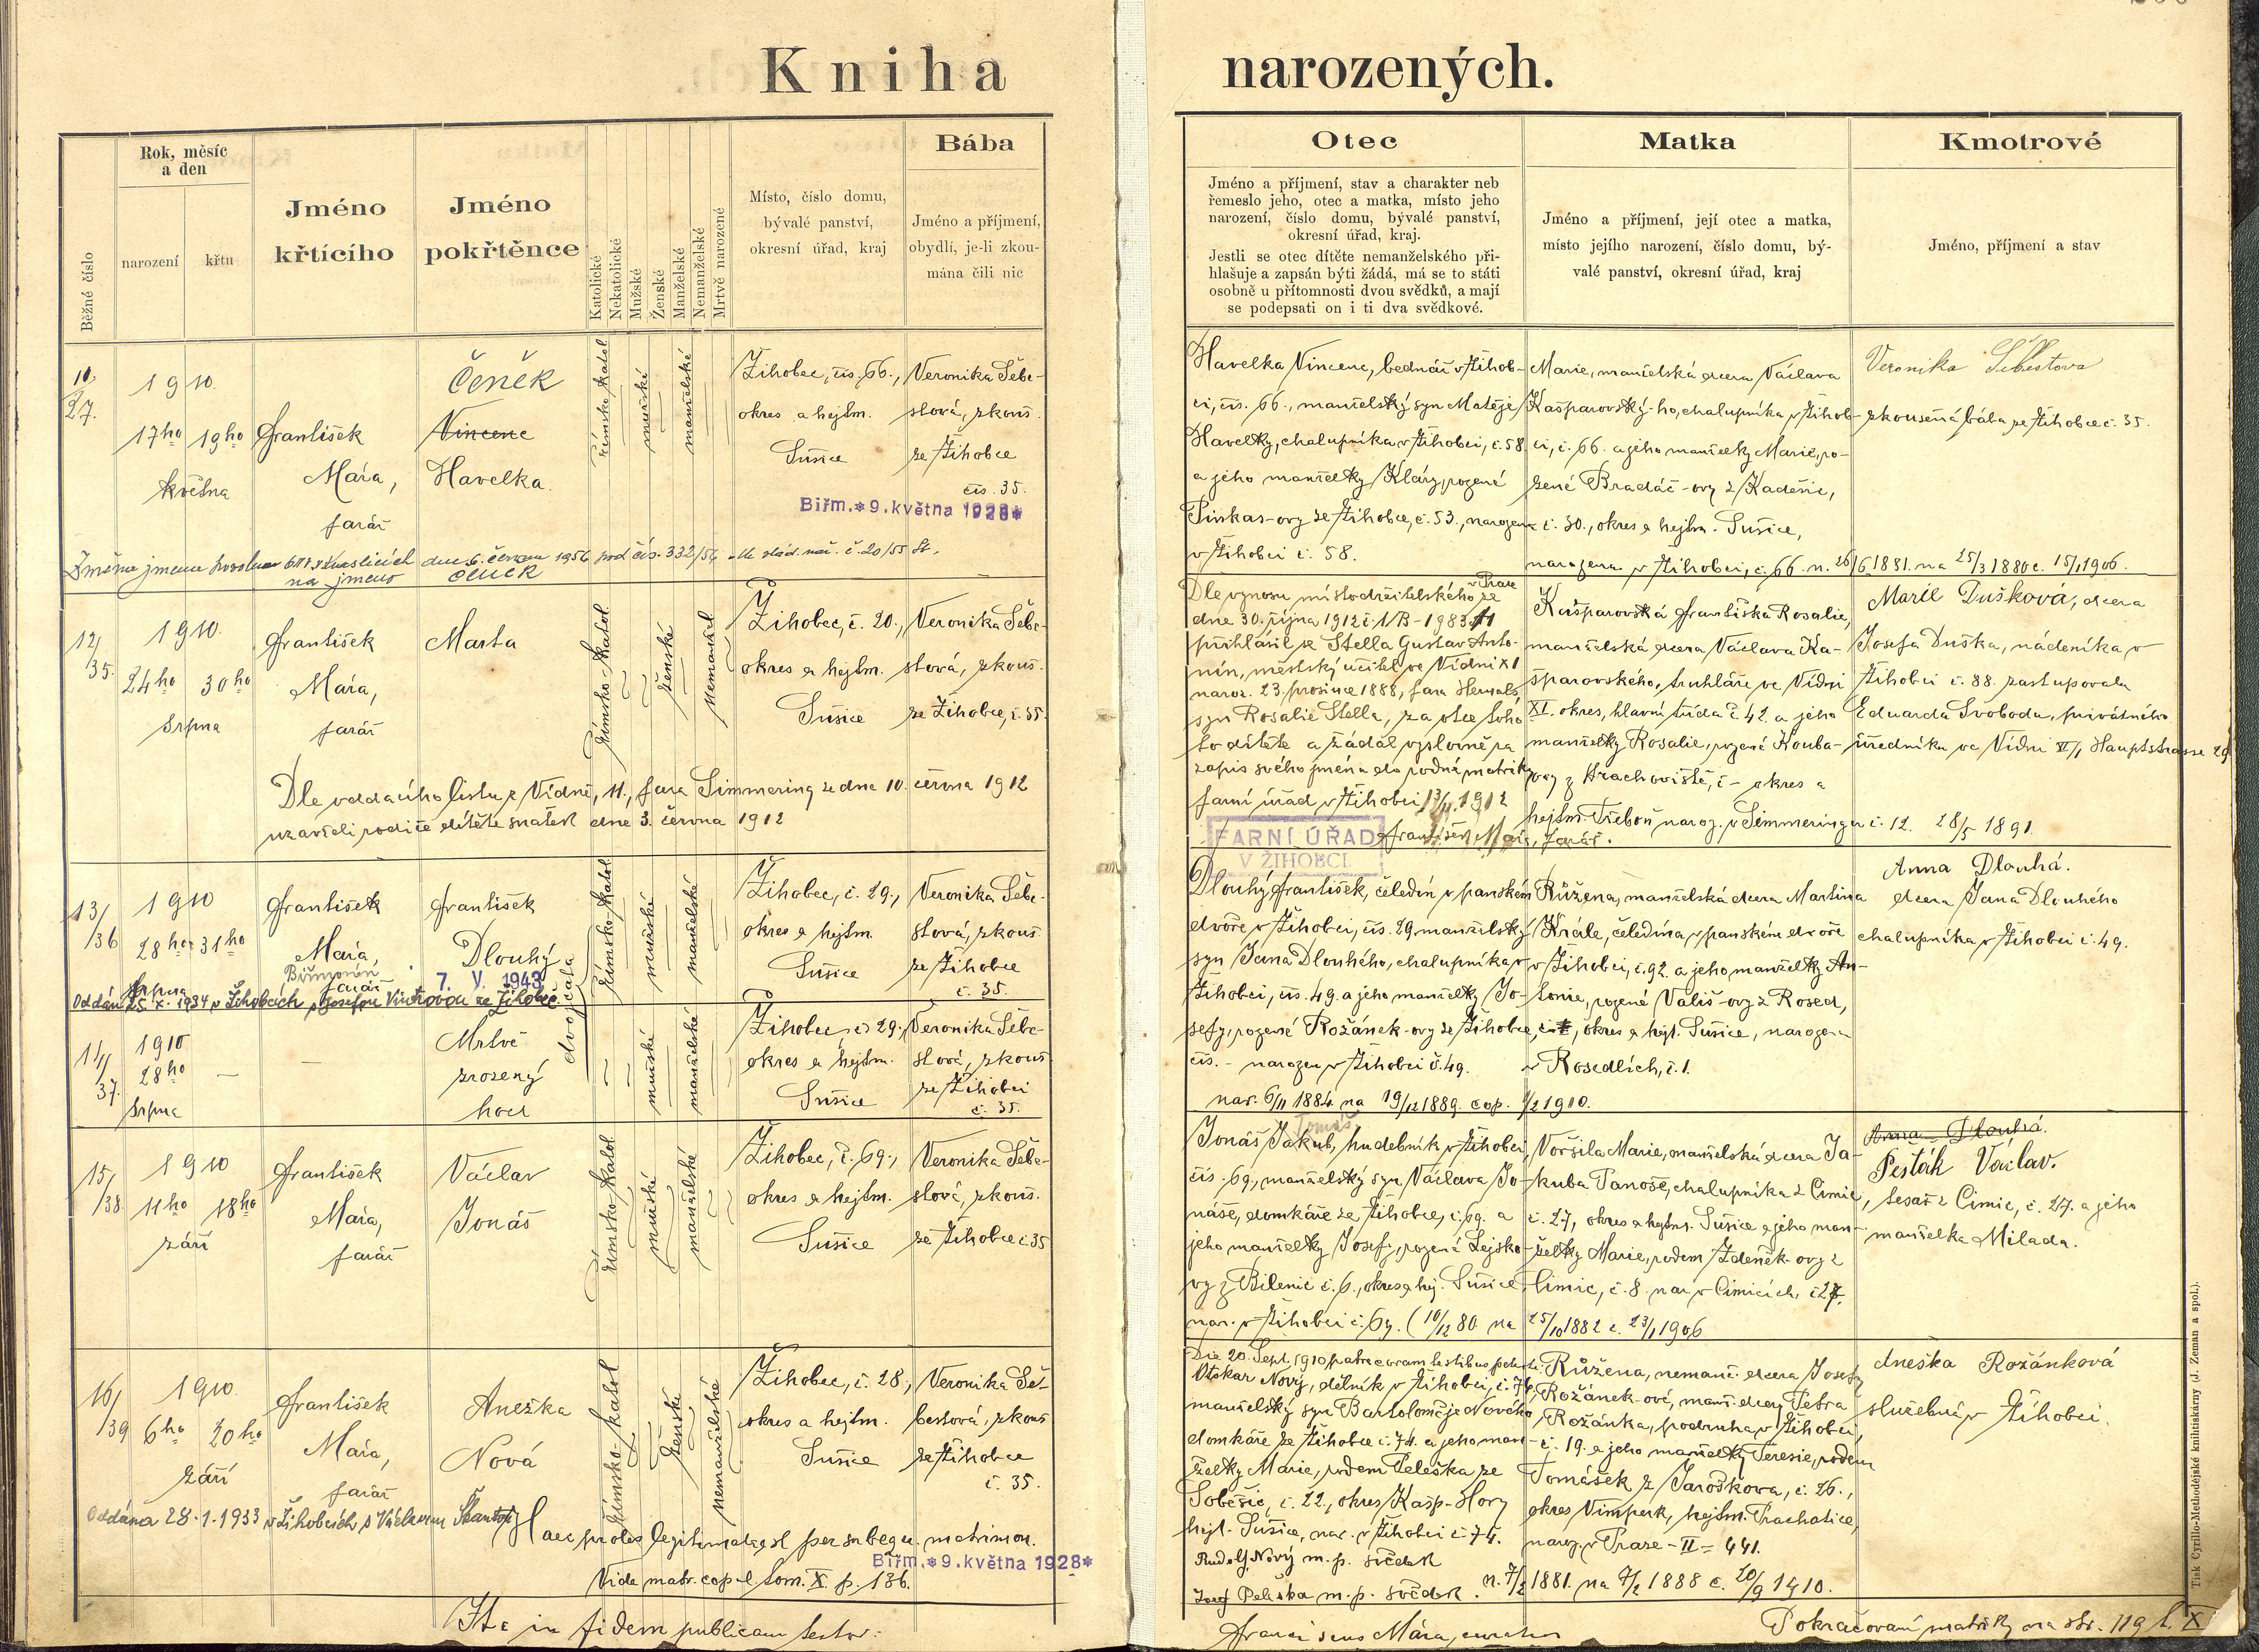 Kniha narozených.
Běžné číslo
Rok, měsíc
a den
narození
křtu
Jméno
křtícího
Jméno
pokřtěnce
Katolické
Nekatolické
Mužské
Ženské
Manželské
Nemanželské
Mrtvě narozené
Místo, číslo domu,
bývalé panství,
okresní úřad, kraj
Bába
Jméno a příjmení,
obydlí, je-li zkou-
mána čili nic
Otec
Jméno a příjmení, stav a charakter neb
řemeslo jeho, otec a matka, místo jeho
narození, číslo domu, bývalé panství,
okresní úřad, kraj.
Jestli se otec dítěte nemanželského při-
hlašuje a zapsán býti žádá, má se to státi
osobně u přítomnosti dvou svědků, a mají
se podepsati on i ti dva svědkové.
Matka
Jméno a příjmení, její otec a matka,
místo jejího narození, číslo domu, bý-
valé panství, okresní úřad, kraj
Kmotrové
Jméno, příjmení a stav
27.
1910
17ho 19ho
května
František
Mára,
farář
Čeněk
Vincenc
Havelka
římsko-katol
mužské
manželské
Žihobec, čís. 66.,
okres a hejtm.
Sušice
Veronika Šebe-
stová, zkouš.
ze Žihobce
čís. 35.
Biřm.*9.května 1928*
Havelka Vincenc, bednář v Žihob-
ci, čís. 66., manželský syn Matěje
Havelky, chalupníka v Žihobci, č. 58.
a jeho manželky Kláry, rozené
Pinkas-ovy ze Žihobce, č. 53., narozen
v Žihobci č. 58.
Marie, manželská dcera Václava
Kašparovský-ho, chalupníka v Žihob-
ci, č. 66. a jeho manželky Marie, ro-
zené Bradáč-ovy z Kadešic,
č. 30., okres a hejtm. Sušice,
narozena v Žihobci, č. 66. n. 26/6 1881. na 25/3 1880 c. 15/1 1906.
Veronika Šebestova
zkoušená bába ze Žihobce č. 35.
dne 6. června 1956 pod čís. 332/56
na jméno Čeněk
12/
35.
1910.
24ho 30ho
srpna
František
Mára,
farář
Marta
římsko-katol
ženské
nemanžel
Žihobec, č. 20.,
okres a hejtm.
Sušice
Veronika Šebe-
stová, zkouš.
ze Žihobce, č. 35.
Dle oddacího listu z Vídně, 11., fara Simmering ze dne 10. června 1912
uzavřeli rodiče dítěte sňatek dne 3. června 1912
Dle výnosu místodržitelského v Praze ze
dne 30. října 1912 č. 1/B-1983/1
přihlásil se Stella Gustav Anto-
nín, městský učitel ve Vídni XI
naroz. 23. prosince 1888, fara Hernals
syn Rosalie Stella, za otce toho
to dítěte a žádal výslovně za
zápis svého jména do rodné matriky
farní úřad v Žihobci 13/11. 1912
František Mára, farář.
FARNÍ ÚŘAD
V ŽIHOBCI.
Kašparovská Františka Rosalie,
manželská dcera Václava Ka-
šparovského, truhláře ve Vídni
XI. okres, hlavní třída č. 42. a jeho
manželky Rosalie, rozené Kouba-
ovy z Hrachoviště, č - okres a
hejtm. Třeboň naroz. v Simmeringu č. 12. 28/5 1891.
Marie Dušková, dcera
Josefa Duška, nádeníka v
Žihobci č. 88. zastupovala
Eduarda Svobodu, privátného
úředníka ve Vídni VI/1 Hauptstrasse 29
13/
36
1910
28ho 31ho
srpna
František
Mára,
farář
František
Dlouhý
Biřmován 7. V. 1943
dvojčata
římsko-katol
mužské
manželské
Žihobec, č. 29.,
okres a hejtm.
Sušice
Veronika Šebe-
stová, zkouš.
ze Žihobce
č. 35.
Oddán 25. X. 1934 v Žihobcích s Josefou Vintrovou ze Žihobec
Dlouhý František, čeledín v panském
dvoře v Žihobci, čís. 29. manželský
syn Jana Dlouhého, chalupníka v
Žihobci, čís. 49. a jeho manželky Jo-
sefy, rozené Rožánek-ovy ze Žihobce,
čís. - narozen v Žihobci č. 49.
nar. 6/11 1884. na 19/12 1889. cop. 1/2 1910.
Růžena, manželská dcera Martina
Krále, čeledína v panském dvoře
v Žihobci, č. 92. a jeho manželky An-
tonie, rozené Vališ-ovy z Rosed,
č. 1, okres a hejt. Sušice, narozena
v Rosedlích, č. 1.
Anna Dlouhá.
dcera Jana Dlouhého
chalupníka v Žihobci č. 49.
14/
37.
1910
28ho
srpna
Mrtvě
zrozený
hoch
mužské
manželské
Žihobec, č. 29.,
okres a hejtm.
Sušice
Veronika Šebe-
stová, zkouš
ze Žihobci
č. 35.
15/
38
1910
11ho 18ho
září
František
Mára,
farář
Václav
Jonáš
římsko-katol
mužské
manželské
Žihobec, č. 69.,
okres a hejtm.
Sušice
Veronika Šebe-
stová, zkouš.
ze Žihobce č. 35
Tomáš
Jonáš Jakub, hudebník v Žihobci,
čís. 69., manželský syn Václava Jo-
náše, domkáře ze Žihobce, č. 69. a
jeho manželky Josefy, rozené Lejsko-
vy z Bilenic č. 6., okres a hej. Sušice,
nar. v Žihobci č. 69. (10/12 80 na 25/10 1882 c. 23/1 1906
Voršila Marie, manželská dcera Ja-
kuba Panoše, chalupníka z Čimic,
č. 27, okres a hejtm. Sušice a jeho man-
želky Marie, rodem Zdeněk-ovy z
Čimic, č. 8. nar. v Čimicích, č. 27.
Anna Dlouhá.
Pešták Václav.
tesař z Čimic, č. 27. a jeho
manželka Milada.
16/
39
1910.
6ho 20ho
září
František
Mára,
farář
Anežka
Nová
římsko-katol
ženské
nemanželské
Žihobec, č. 28.,
okres a hejtm.
Sušice
Veronika Še-
bestová, zkouš
ze Žihobce
č. 35.
Oddána 28.1.1933 v Žihobcích s Václavem
Haec proles legitimata est per subsequ. matrimon.
Vide matr. copul. tom. X. p. 136.
Biřm.*9.května 1928*
Die 20. Sept. 1910 patre coram testibus
Otakar Nový, dělník v Žihobci, č. 74,
manželský syn Bartoloměje Nového
domkáře ze Žihobce č. 74. a jeho man-
želky Marie, rodem Peleška ze
Soběšic, č. 22., okres Kašp-Hory
hejt. Sušice, nar. v Žihobci č. 74.
Rudolf Nový m. p. svědek
Josef Peleška m. p. svědek. n. 7/2 1881. na 7/2 1888 c. 20/9 1910.
Růžena, nemanž. dcera Josefy
Rožánek-ové, manž. dcery Petra
Rožánka, podruha v Žihobci,
č. 19. a jeho manželky Teresie, rodem
Tomášek z Jaroškova, č. 26.,
okres Vimperk, hejtm. Prachatice,
naroz. v Praze-II-441.
Aneška Rožánková
služebná v Žihobci.
Ita in fidem publicam testor:
Franciscus Mára, curatus
Pokračování matriky na str. 119 t. X
Tisk Cyrillo-Methodějské knihtiskárny (J. Zeman a spol.).